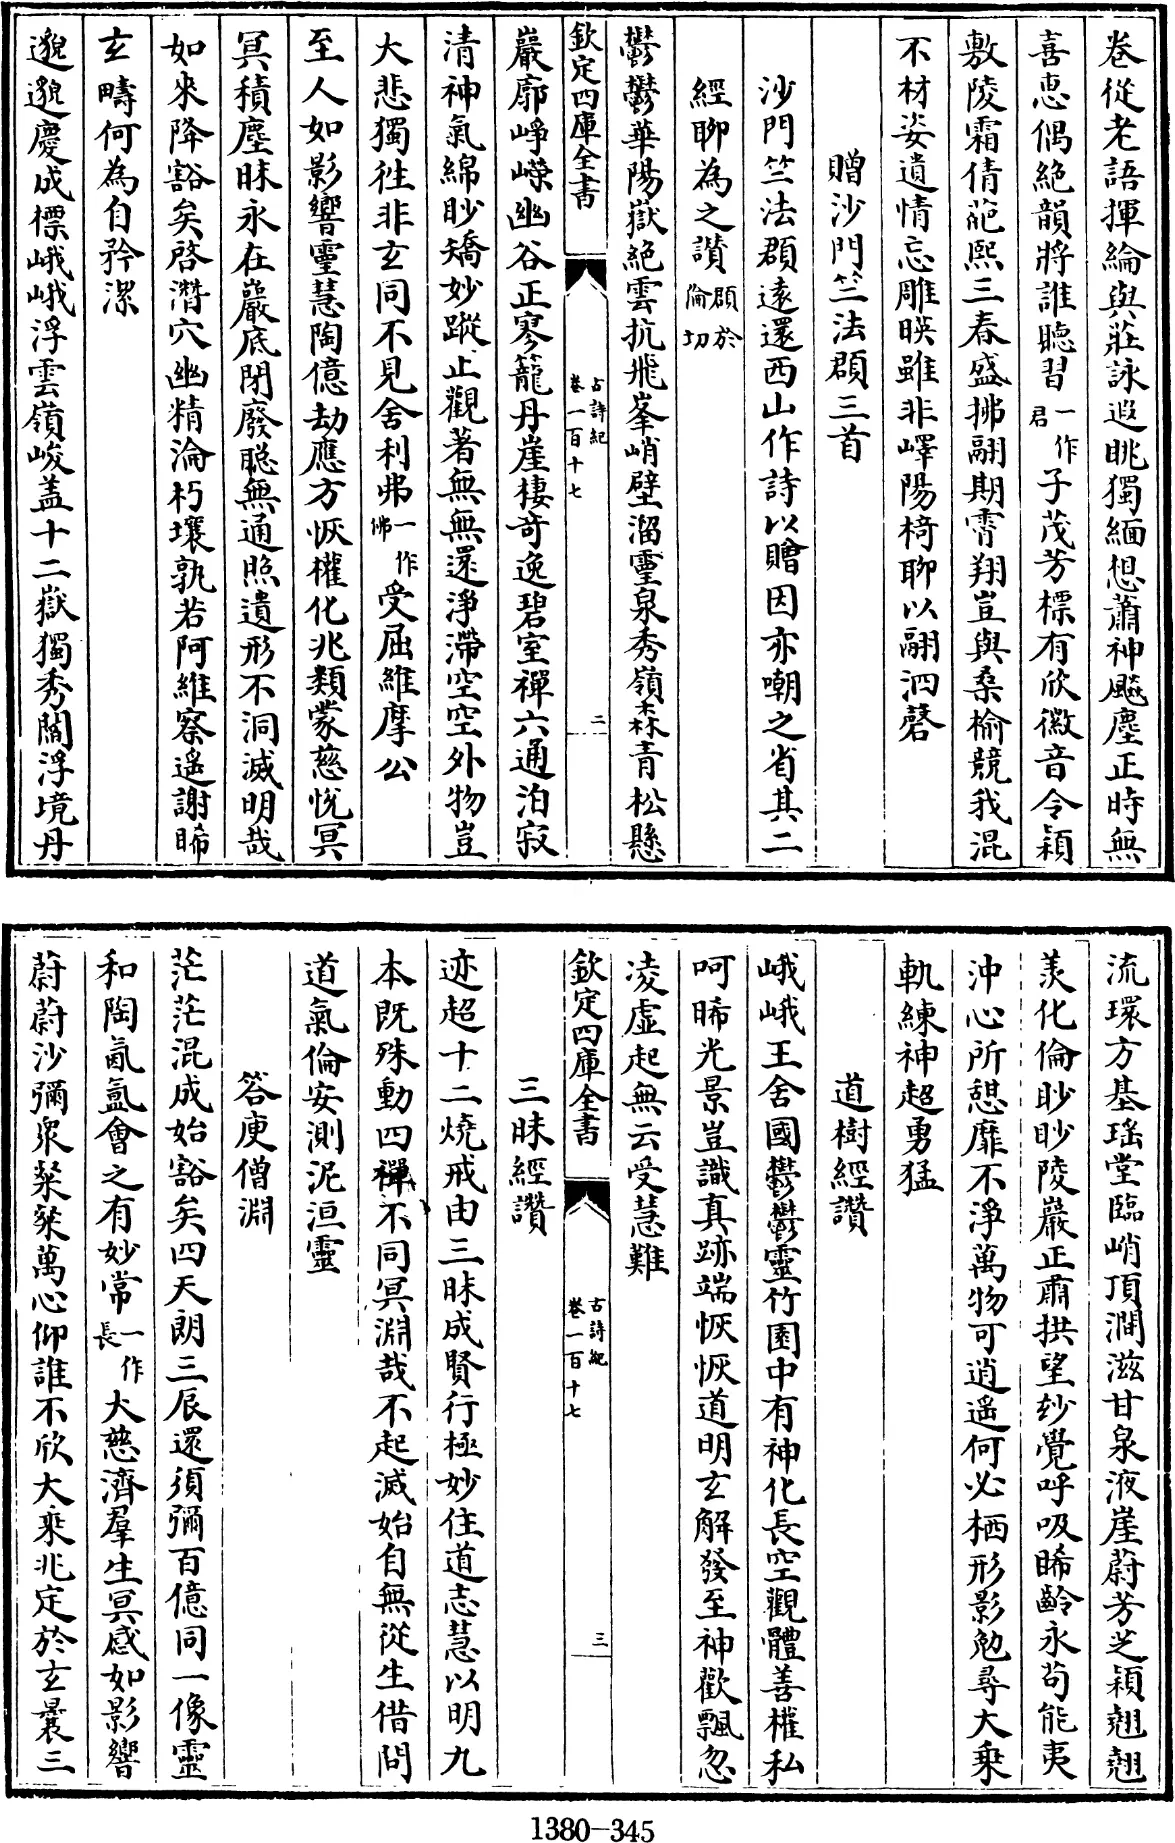 卷從老語揮綸與莊詠遐眺獨緬想蕭神飈塵正時無
喜恵偶絶韻將誰聽習一作君子茂芳標有欣徽音令穎
敷陵霜倩葩熙三春盛拂翮期霄翔豈與桑榆競我混
不材姿遺情忘雕暎雖非嶧陽椅聊以翮泗磬
贈沙門竺法頵三首
沙門竺法頵遠還西山作詩以贈因亦嘲之省其二
經聊為之讃頵於倫切
鬱鬱華陽嶽絶雲抗飛峯峭壁溜靈泉秀嶺森青松懸
欽定四庫全書
古詩紀
卷一百十七
二
巖廓崢嶸幽谷正寥籠丹崖棲竒逸碧室禪六通泊寂
清神氣綿眇矯妙蹤止觀著無無還淨滯空空外物豈
大悲獨徃非玄同不見舍利弗一作佛受屈維摩公
至人如影響靈慧陶億劫應方恢權化兆類蒙慈悅冥
冥積塵昧永在巖底閉廢聪無通照遺形不洞滅明哉
如來降豁矣啓潛穴幽精淪朽壤孰若阿維察遙謝晞
玄疇何為自矜潔
邈邈慶成標峨峨浮雲嶺峻盖十二嶽獨秀閻浮境丹
流環方基瑤堂臨峭頂澗滋甘泉液崖蔚芳芝穎翹翹
羨化倫眇眇陵巖正肅拱望妙覺呼吸晞齡永苟能夷
沖心所憩靡不淨萬物可逍遥何必栖形影勉尋大乗
軌練神超勇猛
道樹經讚
峨峨王舍國鬱鬱靈竹園中有神化長空觀體善權私
呵晞光景豈識真跡端恢恢道明玄解發至神歡飄忽
凌虛起無云受慧難
欽定四庫全書
古詩紀
卷一百十七
三
三昧經讚
迹超十二燒戒由三昧成賢行極妙住道志慧以明九
本既殊動四禪不同冥淵哉不起滅始自無從生借問
道氣倫安測泥洹靈
答庾僧淵
茫茫混成始豁矣四天朗三辰還須彌百億同一像靈
和陶氤氳會之有妙常一作長大慈濟羣生冥感如影響
蔚蔚沙彌衆粲粲萬心仰誰不欣大乘兆定於玄曩三
1380-345